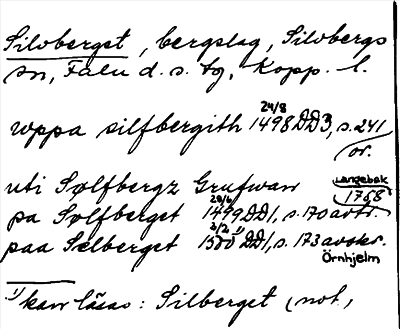 Silvberget, bergslag, Silvbergs
sn, Falu d. s. tg, Kopp. l.
uppa silfbergith 24/8 1498 DD3, s. 241
or.
uti Sølfbergz Grufwan Langebek 1758
pa Solfberget 29/6 1499 DD1, s. 170 avtr.
paa Selberget 2/2 1500 1) DD1, s. 173 avskr.
Örnhjelm
1) kan läsas: Silberget (not,